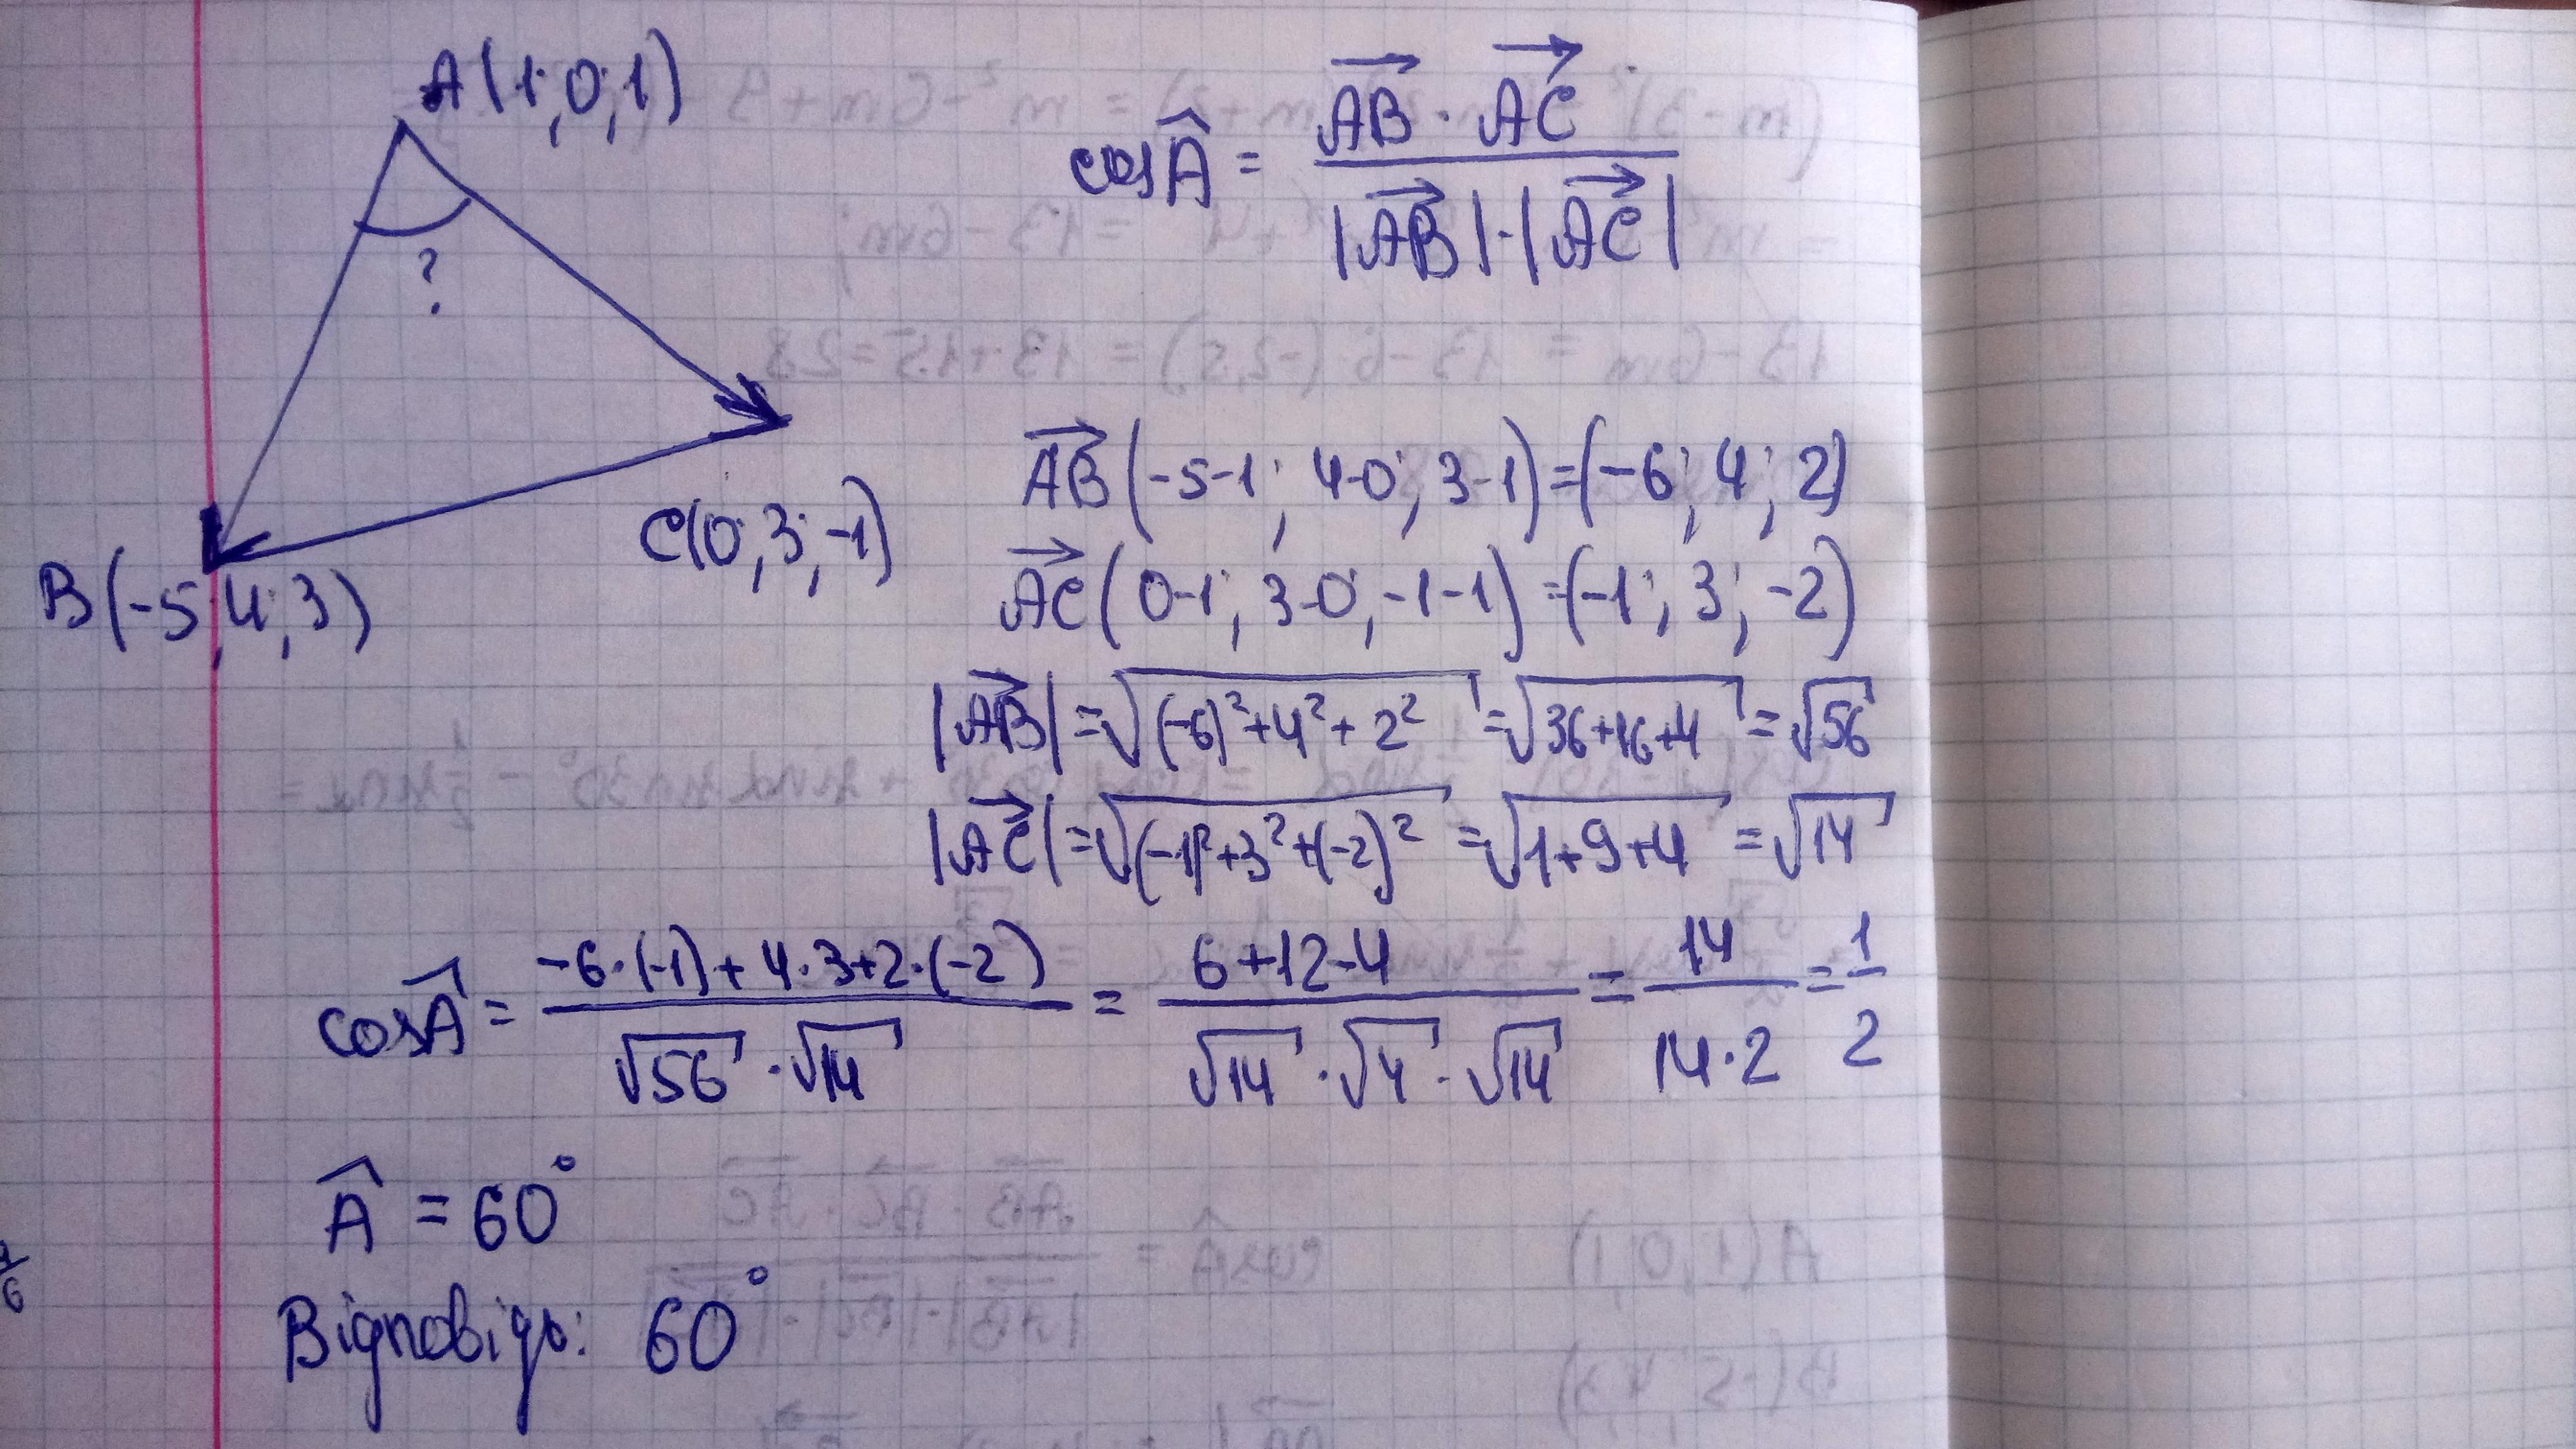 A(1;0;1)
?
B(-5;4;3)
C(0;3;-1)
cos Â = (AB⃗ · AC⃗) / (|AB⃗|·|AC⃗|)
AB⃗(-5-1; 4-0; 3-1)=(-6; 4; 2)
AC⃗(0-1; 3-0; -1-1)=(-1; 3; -2)
|AB⃗|=√((-6)²+4²+2²)=√(36+16+4)=√56
|AC⃗|=√((-1)²+3²+(-2)²)=√(1+9+4)=√14
cos Â = (-6·(-1)+4·3+2·(-2)) / (√56·√14) = (6+12-4) / (√14·√4·√14) = 14 / (14·2) = 1/2
Â = 60°
Відповідь: 60°